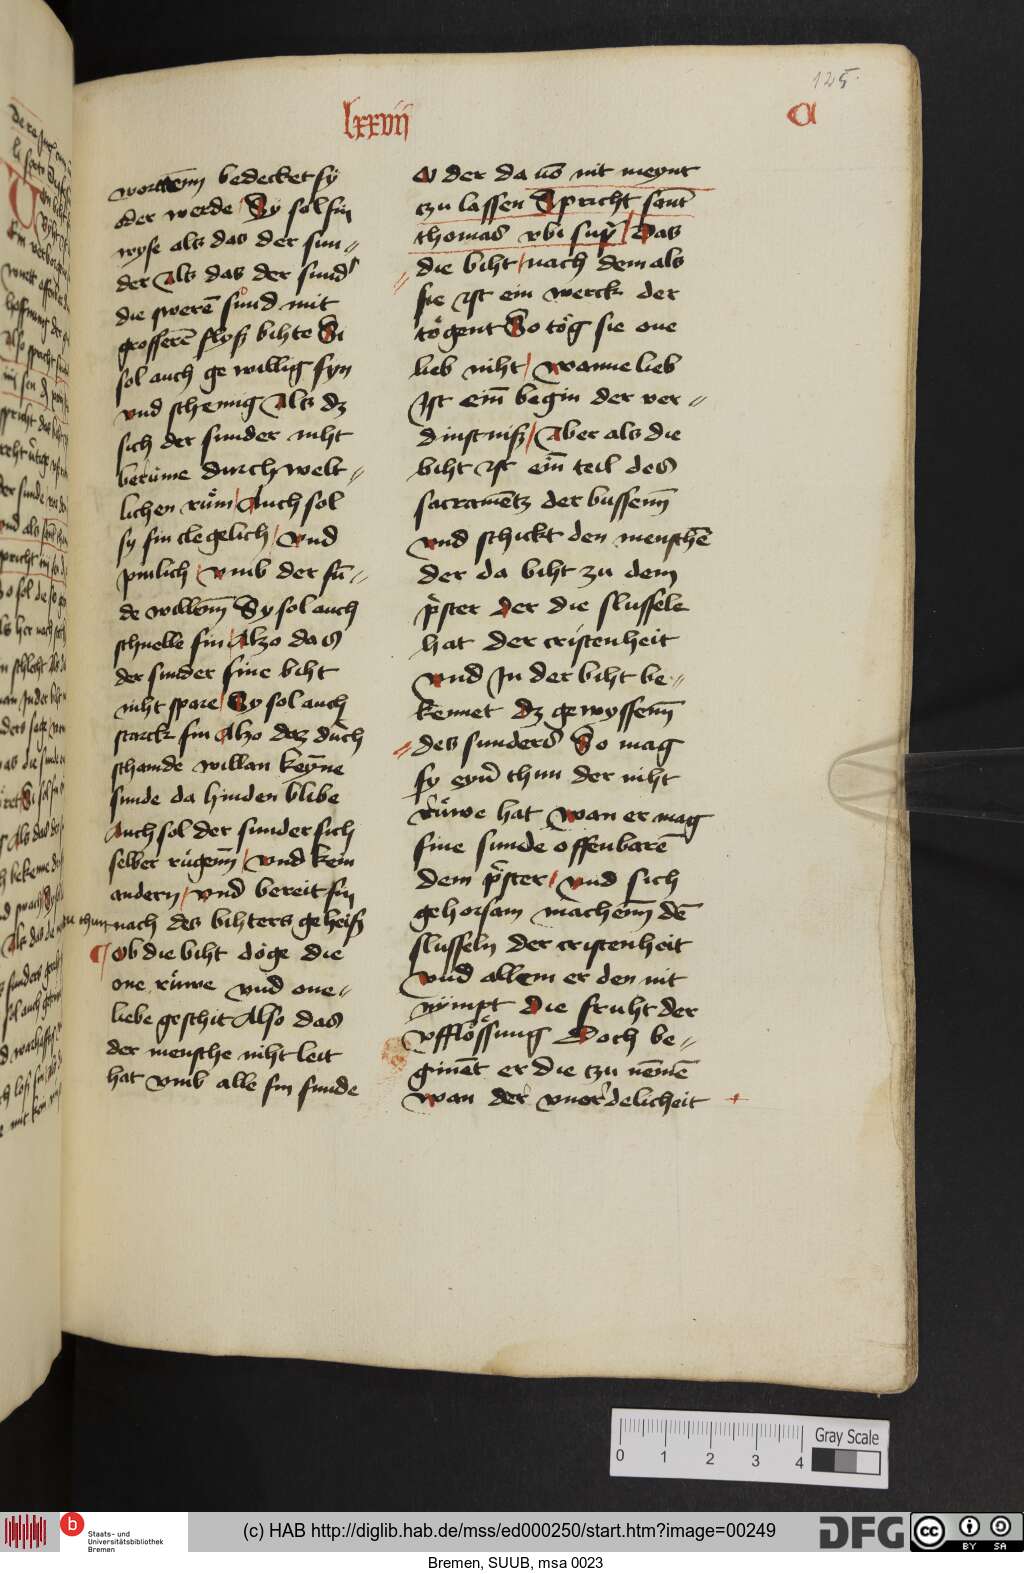 125.
lxxvij
a
wortēnn bedecket sÿ
oder werde / Sy sol sin
wyse als das der sun〃
der Als das der sund'
die swerē sund mit
grosserē flyß bihte Si
sol auch ge willig syn
vnd schemig Als dz
sich der sunder niht
berüme durch welt〃
lichen rům / Auch sol
sy sin clegelich / vnd
pinlich / vmb der sü〃
de willenn Sy sol auch
schnelle sin / Alzo das
der sunder sine biht
niht spare / Sy sol auch
starck sin Alzo daz duͤch
schamde willan keȳne
sunde da hinden blibe
Auch sol der sunder sich
selber rügenn̄ / vnd kein
andern / vnd bereit sin
zu thun nach des bihters geheiß
¶ Ob die biht doͤge die
one ruͤwe vnd one〃
liebe geschit Also das
der mensche niht leit
hat vmb alle sin sunde
O der da vō nit meynt
tzu lassen Spricht sant
thomas vbi sup̄ / Das
die biht / nach dem als
sie ist ein werck der
toͤgent So toͤg sie one
lieb niht / wanne lieb
Ist ein̄ begin der ver〃
dinstniß / Aber als die
biht ist ein̄ teil des
sacramētz der bussenn̄
vnd schickt den menschē
der da biht zu dem
pͥster der die slussele
hat der cristenheit
vnd In der biht be〃
kennet dz gewyssenn̄
des sunders So mag
sy eyn̄ thun der niht
Ruͤwe hat wan er mag
sine sunde offenbarē
dem pͥster / vnd sich
gehorsam machenn̄ dē
slusseln der cristenheit
Vnd allem er den nit
nÿmpt die fruht der
vffloͤssung Doch be〃
ginēt er die tzu nēmē
wan der vnor̄delicheit +
0 1 2 3 4
Gray Scale
b
Staats- und
Universitätsbibliothek
Bremen
(c) HAB http://diglib.hab.de/mss/ed000250/start.htm?image=00249
DFG
cc
BY SA
Bremen, SUUB, msa 0023